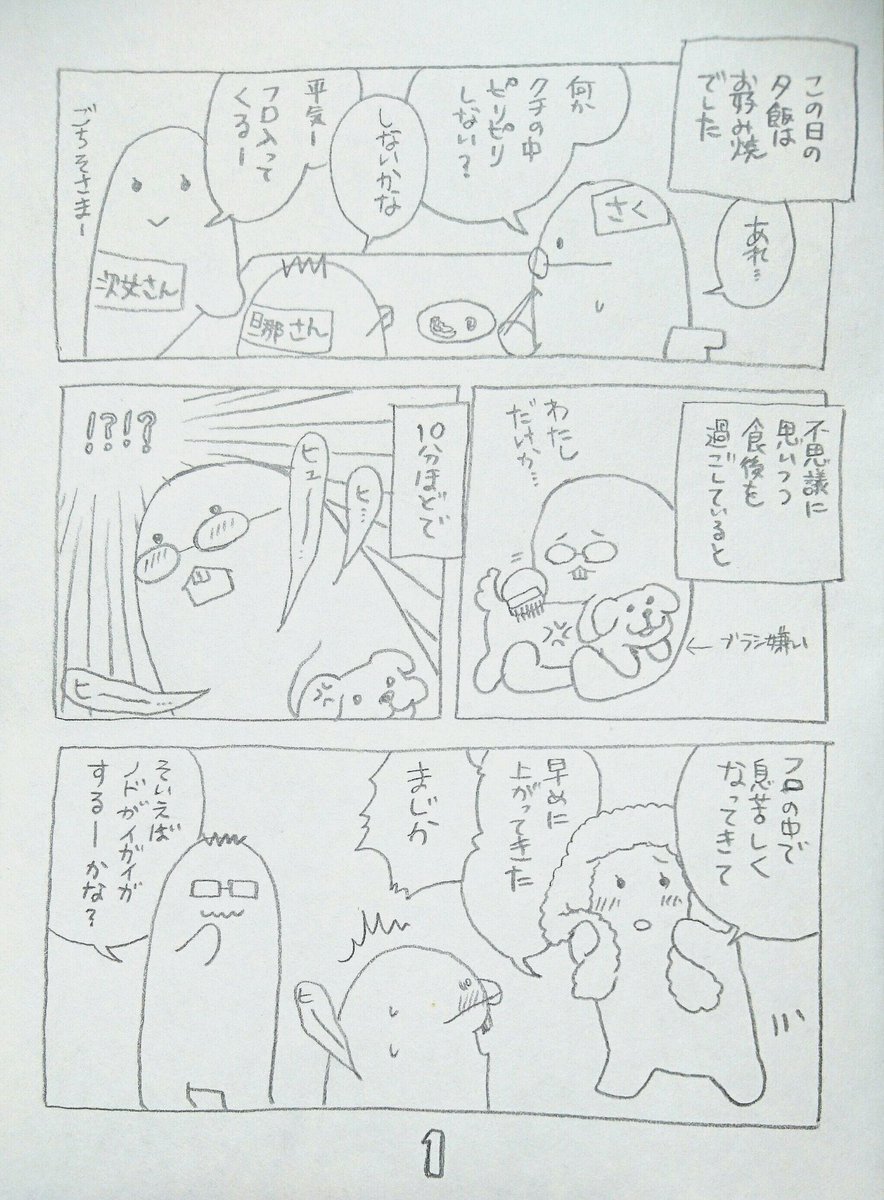 この日の
夕飯は
お好み焼
でした
あれ…
さく
何か
クチの中
ピリピリ
しない？
しないかな
平気ー
フロ入って
くるー
ごちそさまー
旦那さん
次女さん
不思議に
思いつつ
食後を
過ごしていると
わたし
だけか…
←ブラシ嫌い
10分ほどで
ヒ…
ヒューー
!?!?
ヒー…
フロの中で
息苦しく
なってきて
早めに
上がってきた
まじか
ヒー
そいえば
ノドがイガイガ
するーかな？
1